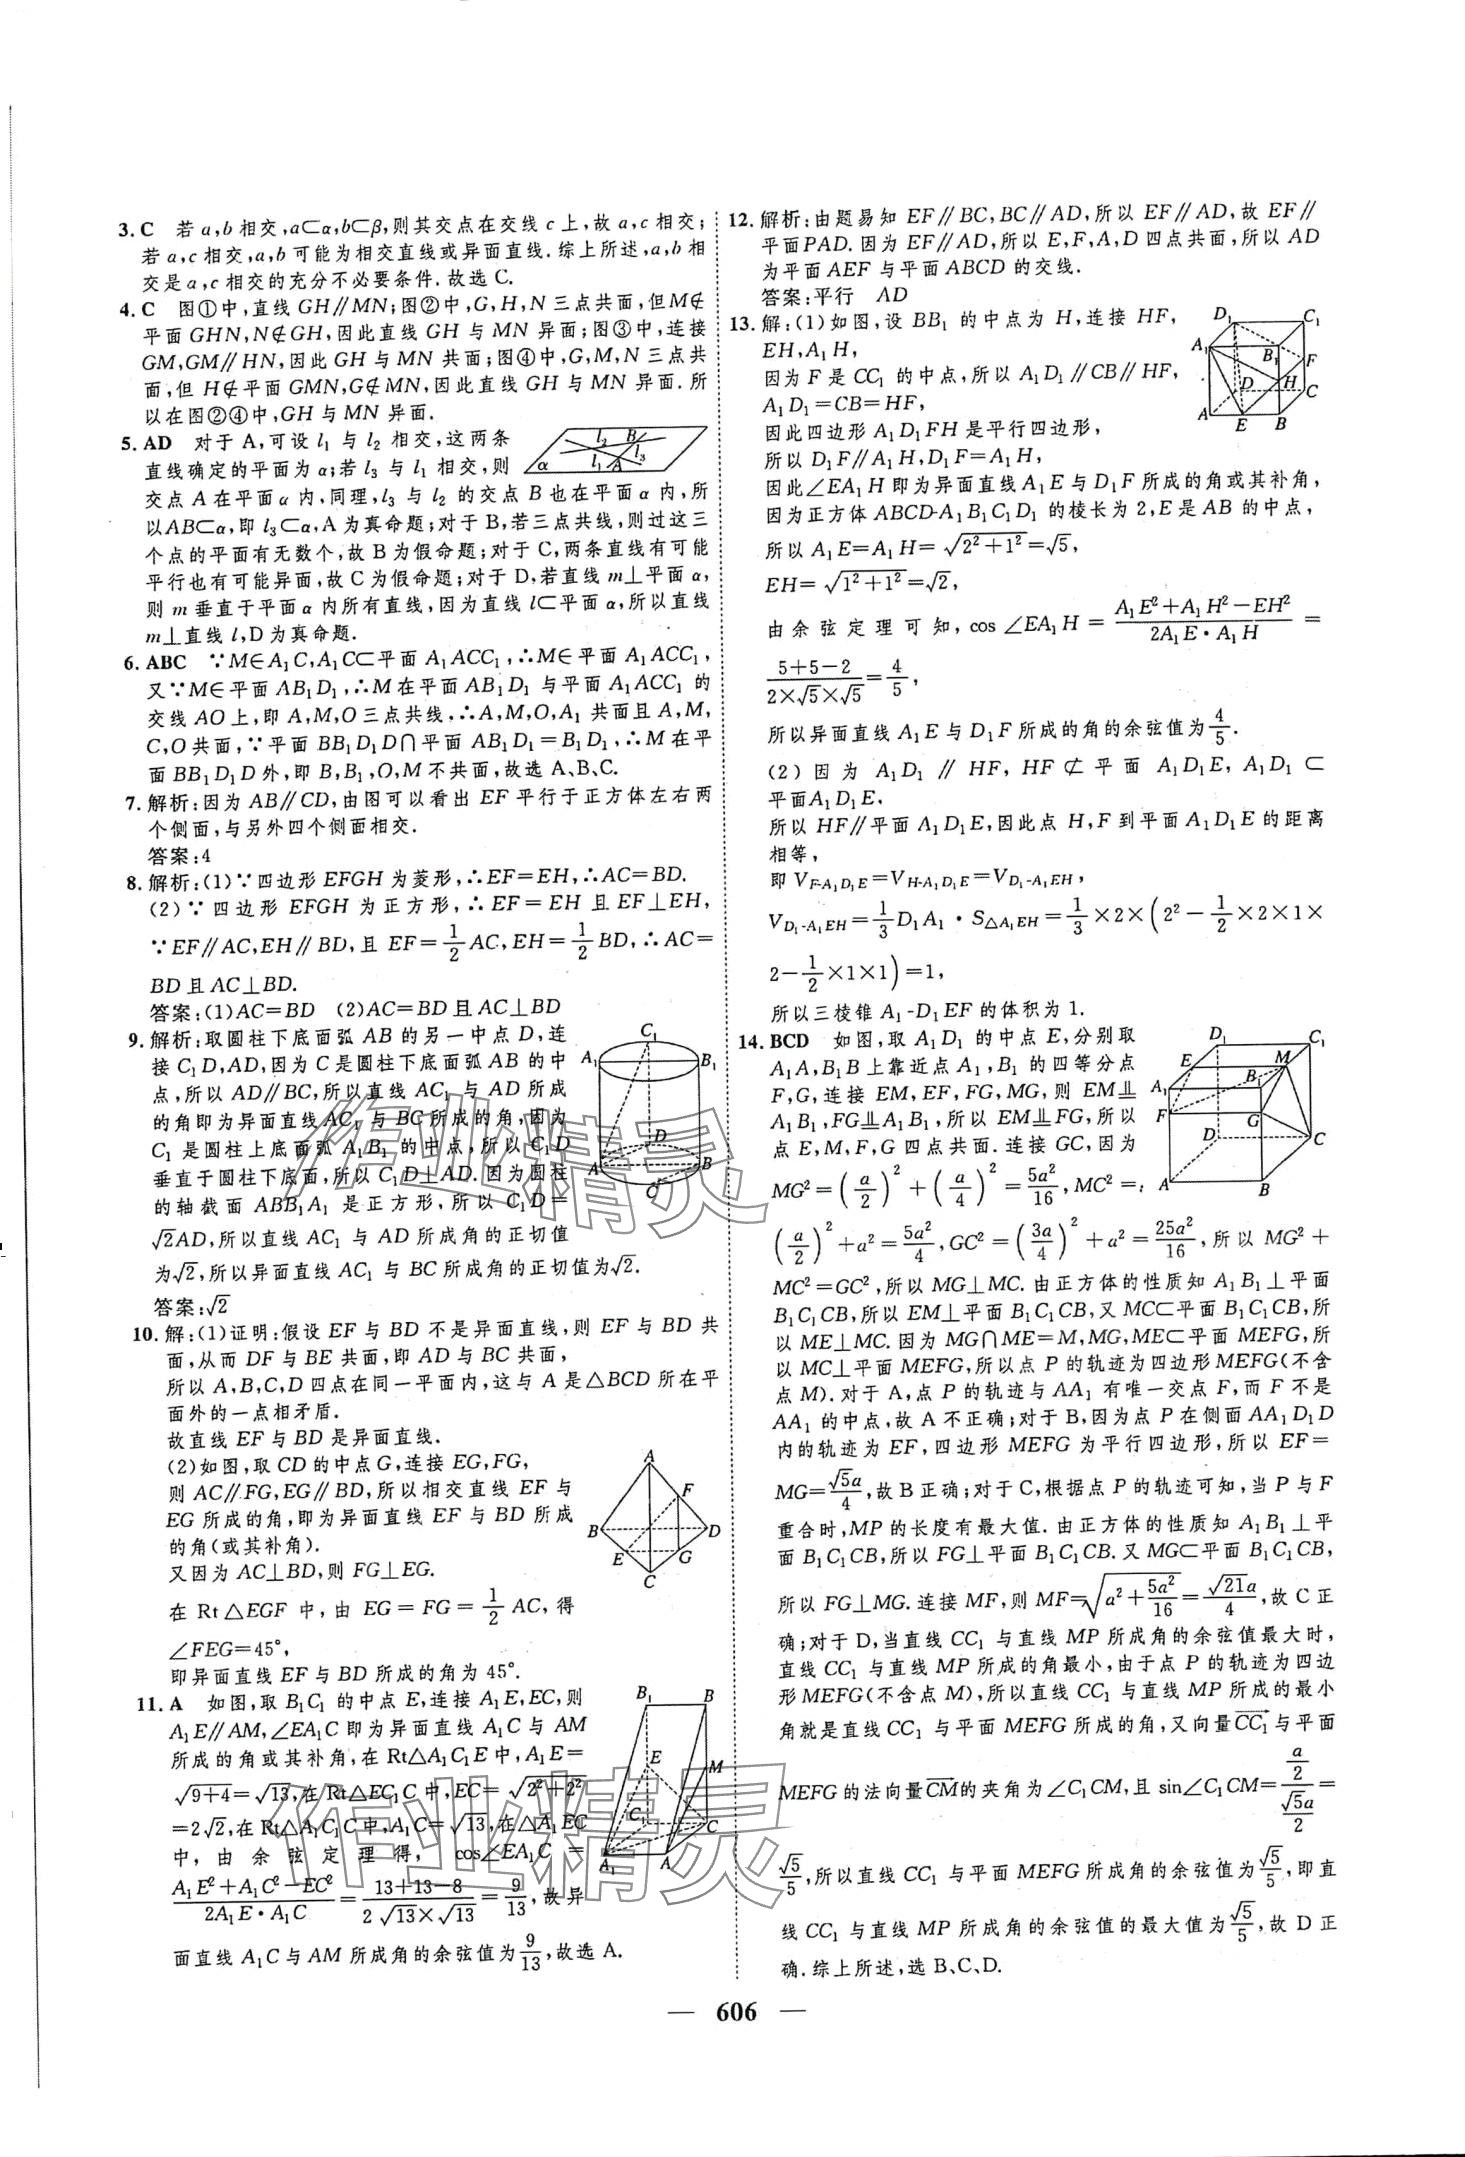 3. C 若 a,b 相交,a⊂α,b⊂β,则其交点在交线 c 上,故 a,c 相交;
若 a,c 相交,a,b 可能为相交直线或异面直线.综上所述,a,b 相
交是 a,c 相交的充分不必要条件.故选 C.
4. C 图①中,直线 GH∥MN;图②中,G,H,N 三点共面,但M∉
平面 GHN,N∉GH,因此直线 GH 与 MN 异面;图③中,连接
GM,GM∥HN,因此 GH 与 MN 共面;图④中,G,M,N 三点共
面,但 H∉平面 GMN,G∉MN,因此直线 GH 与 MN 异面.所
以在图②④中,GH 与 MN 异面.
5. AD 对于 A,可设 l₁ 与 l₂ 相交,这两条
直线确定的平面为 α;若 l₃ 与 l₁ 相交,则
交点 A 在平面 α 内,同理,l₃ 与 l₂ 的交点 B 也在平面 α 内,所
以AB⊂α,即 l₃⊂α,A 为真命题;对于 B,若三点共线,则过这三
个点的平面有无数个,故 B 为假命题;对于 C,两条直线有可能
平行也有可能异面,故 C 为假命题;对于 D,若直线 m⊥平面 α,
则 m 垂直于平面 α 内所有直线,因为直线 l⊂平面 α,所以直线
m⊥直线 l,D 为真命题.
6. ABC ∵M∈A₁C,A₁C⊂平面 A₁ACC₁,∴M∈平面 A₁ACC₁,
又∵M∈平面 AB₁D₁,∴M 在平面 AB₁D₁ 与平面 A₁ACC₁ 的
交线 AO 上,即 A,M,O 三点共线,∴A,M,O,A₁ 共面且 A,M,
C,O共面,∵平面 BB₁D₁D∩平面 AB₁D₁=B₁D₁,∴M 在平
面 BB₁D₁D 外,即 B,B₁,O,M 不共面,故选 A、B、C.
7. 解析:因为 AB∥CD,由图可以看出 EF 平行于正方体左右两
个侧面,与另外四个侧面相交.
答案:4
8. 解析:(1)∵四边形 EFGH 为菱形,∴EF=EH,∴AC=BD.
(2)∵四边形 EFGH 为正方形,∴EF=EH 且 EF⊥EH,
∵EF∥AC,EH∥BD,且 EF=1/2 AC,EH=1/2 BD,∴AC=
BD且 AC⊥BD.
答案:(1)AC=BD (2)AC=BD 且 AC⊥BD
9. 解析:取圆柱下底面弧 AB 的另一中点 D,连
接 C₁D,AD,因为 C 是圆柱下底面弧 AB 的中
点,所以 AD∥BC,所以直线 AC₁ 与 AD 所成
的角即为异面直线 AC₁ 与 BC 所成的角,因为
C₁ 是圆柱上底面弧 A₁B₁ 的中点,所以 C₁D
垂直于圆柱下底面,所以 C₁D⊥AD.因为圆柱
的轴截面 ABB₁A₁ 是正方形,所以 C₁D=
√2AD,所以直线 AC₁ 与 AD 所成角的正切值
为√2,所以异面直线 AC₁ 与 BC 所成角的正切值为√2.
答案:√2
10. 解:(1)证明:假设 EF 与 BD 不是异面直线,则 EF 与 BD 共
面,从而 DF 与 BE 共面,即 AD 与 BC 共面,
所以 A,B,C,D 四点在同一平面内,这与 A 是△BCD 所在平
面外的一点相矛盾.
故直线 EF 与 BD 是异面直线.
(2)如图,取 CD 的中点 G,连接 EG,FG,
则 AC∥FG,EG∥BD,所以相交直线 EF 与
EG 所成的角,即为异面直线 EF 与 BD 所成
的角(或其补角).
又因为 AC⊥BD,则 FG⊥EG.
在 Rt△EGF 中,由 EG=FG=1/2 AC,得
∠FEG=45°,
即异面直线 EF 与 BD 所成的角为 45°.
11. A 如图,取 B₁C₁ 的中点 E,连接 A₁E,EC,则
A₁E∥AM,∠EA₁C 即为异面直线 A₁C 与 AM
所成的角或其补角,在 Rt△A₁C₁E 中,A₁E=
√(9+4)=√13,在 Rt△EC₁C 中,EC=√(2²+2²)
=2√2,在 Rt△A₁C₁C 中,A₁C=√13,在△A₁EC
中,由余弦定理得,cos∠EA₁C=
(A₁E²+A₁C²−EC²)/(2A₁E·A₁C)=(13+13−8)/(2√13×√13)=9/13,故异
面直线 A₁C 与 AM 所成角的余弦值为9/13,故选 A.
12. 解析:由题易知 EF∥BC,BC∥AD,所以 EF∥AD,故 EF∥
平面PAD.因为 EF∥AD,所以 E,F,A,D 四点共面,所以 AD
为平面 AEF 与平面 ABCD 的交线.
答案:平行 AD
13. 解:(1)如图,设 BB₁ 的中点为 H,连接 HF,
EH,A₁H,
因为 F 是 CC₁ 的中点,所以 A₁D₁∥CB∥HF,
A₁D₁=CB=HF,
因此四边形 A₁D₁FH 是平行四边形,
所以 D₁F∥A₁H,D₁F=A₁H,
因此∠EA₁H 即为异面直线A₁E与D₁F所成的角或其补角,
因为正方体 ABCD-A₁B₁C₁D₁ 的棱长为 2,E 是 AB 的中点,
所以 A₁E=A₁H=√(2²+1²)=√5,
EH=√(1²+1²)=√2,
由余弦定理可知,cos∠EA₁H=(A₁E²+A₁H²−EH²)/(2A₁E·A₁H)=
(5+5−2)/(2×√5×√5)=4/5,
所以异面直线 A₁E 与 D₁F 所成的角的余弦值为4/5.
(2)因为 A₁D₁∥HF,HF⊄平面 A₁D₁E,A₁D₁⊂
平面A₁D₁E,
所以 HF∥平面 A₁D₁E,因此点 H,F 到平面A₁D₁E 的距离
相等,
即 V_{F-A₁D₁E}=V_{H-A₁D₁E}=V_{D₁-A₁EH},
V_{D₁-A₁EH}=1/3 D₁A₁·S_{△A₁EH}=1/3×2×(2²−1/2×2×1×
2−1/2×1×1)=1,
所以三棱锥 A₁-D₁EF 的体积为 1.
14. BCD 如图,取 A₁D₁ 的中点 E,分别取
A₁A,B₁B 上靠近点 A₁,B₁ 的四等分点
F,G,连接 EM,EF,FG,MG,则 EM⫫
A₁B₁,FG⫫A₁B₁,所以 EM⫫FG,所以
点 E,M,F,G 四点共面.连接 GC,因为
MG²=(a/2)²+(a/4)²=5a²/16,MC²=
(a/2)²+a²=5a²/4,GC²=(3a/4)²+a²=25a²/16,所以 MG²+
MC²=GC²,所以 MG⊥MC.由正方体的性质知 A₁B₁⊥平面
B₁C₁CB,所以 EM⊥平面 B₁C₁CB,又 MC⊂平面 B₁C₁CB,所
以 ME⊥MC.因为 MG∩ME=M,MG,ME⊂平面 MEFG,所
以 MC⊥平面 MEFG,所以点 P 的轨迹为四边形MEFG(不含
点 M).对于 A,点 P 的轨迹与 AA₁ 有唯一交点 F,而 F 不是
AA₁ 的中点,故 A 不正确;对于 B,因为点 P 在侧面 AA₁D₁D
内的轨迹为 EF,四边形 MEFG 为平行四边形,所以 EF=
MG=√5a/4,故 B 正确;对于 C,根据点 P 的轨迹可知,当 P 与 F
重合时,MP 的长度有最大值.由正方体的性质知 A₁B₁⊥平
面 B₁C₁CB,所以 FG⊥平面 B₁C₁CB.又 MG⊂平面 B₁C₁CB,
所以 FG⊥MG.连接 MF,则 MF=√(a²+5a²/16)=√21a/4,故 C 正
确;对于 D,当直线 CC₁ 与直线 MP 所成角的余弦值最大时,
直线 CC₁ 与直线 MP 所成的角最小,由于点 P 的轨迹为四边
形MEFG(不含点 M),所以直线 CC₁ 与直线 MP 所成的最小
角就是直线 CC₁ 与平面 MEFG 所成的角,又向量CC₁→与平面
MEFG 的法向量CM→的夹角为∠C₁CM,且 sin∠C₁CM=(a/2)/(√5a/2)=
√5/5,所以直线 CC₁ 与平面 MEFG 所成角的余弦值为√5/5,即直
线 CC₁ 与直线 MP 所成角的余弦值的最大值为√5/5,故 D 正
确.综上所述,选 B、C、D.
— 606 —
作业精灵
作业精灵